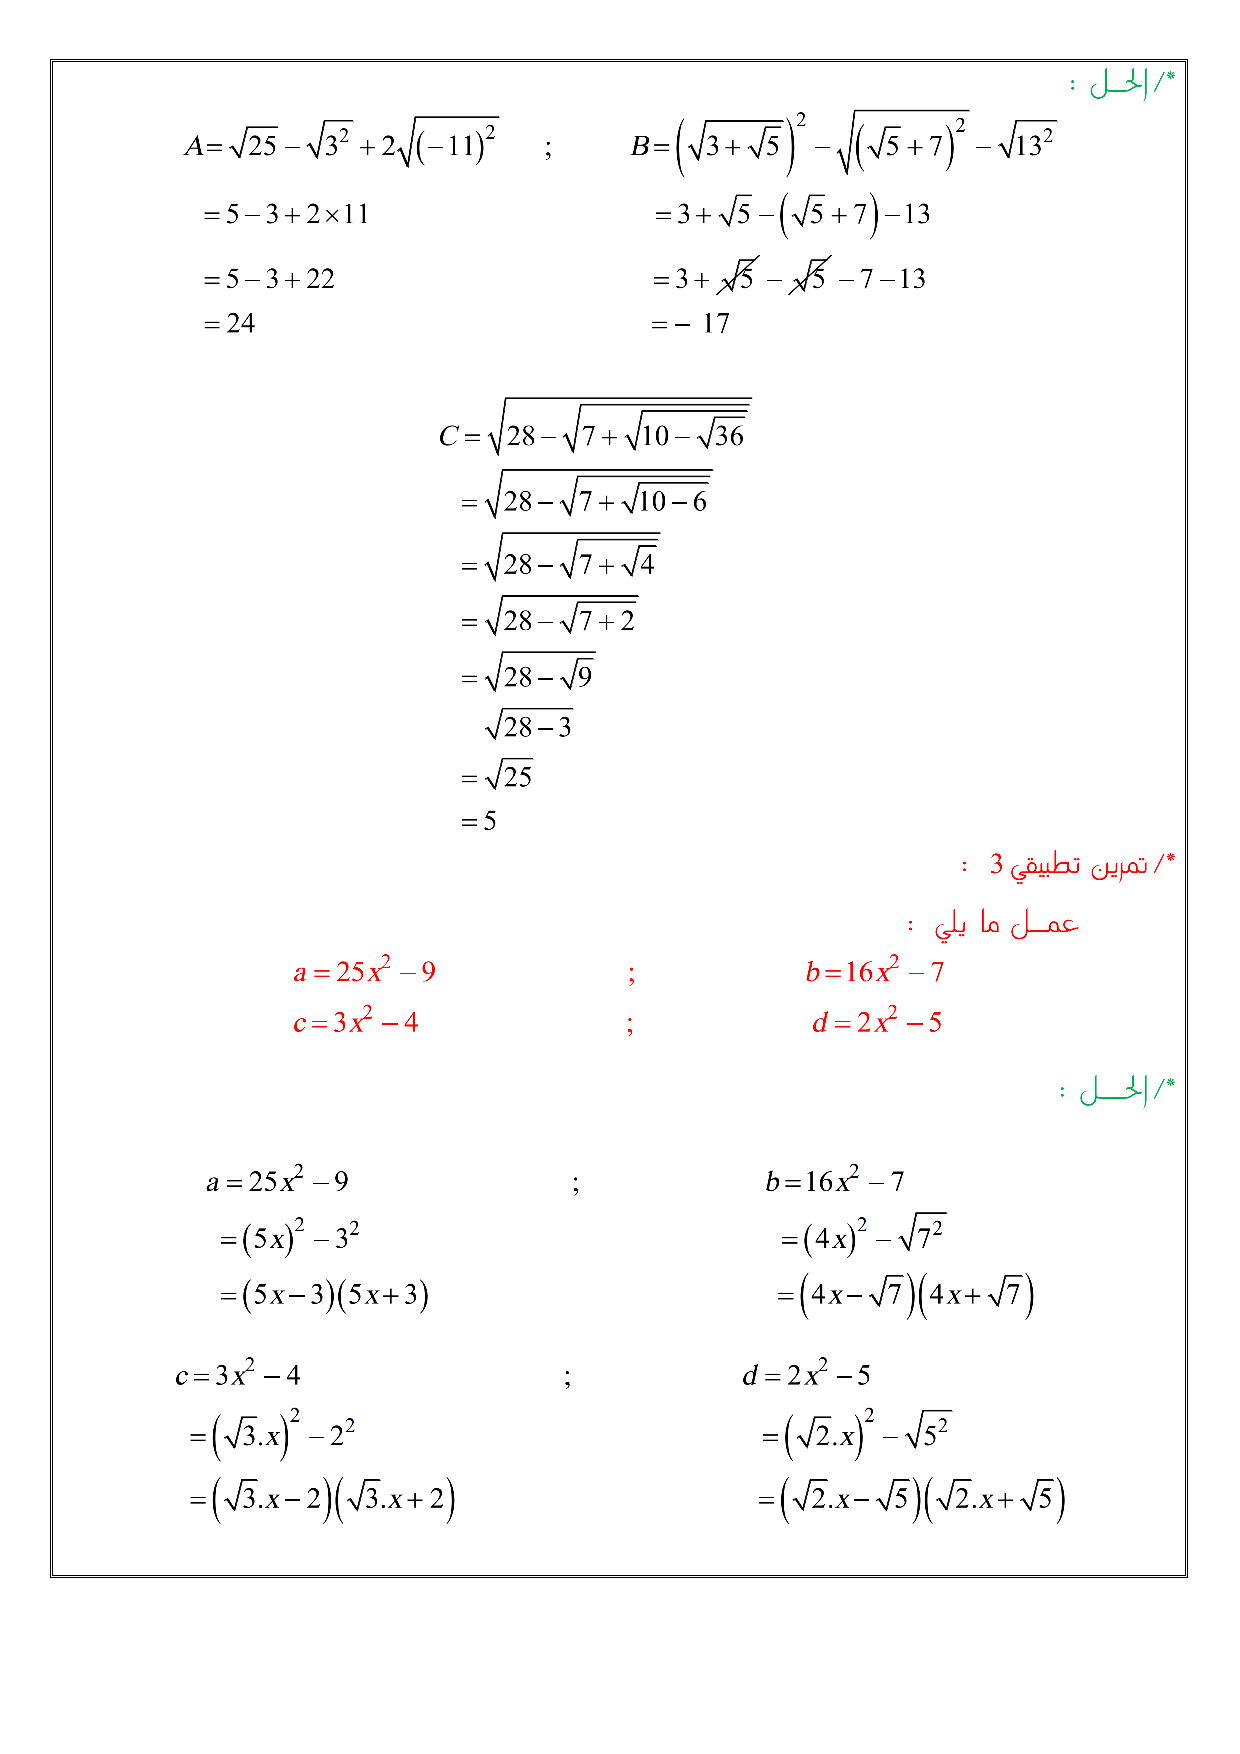 */ الحـل :
A = √25 − √3² + 2√(−11)² ; B = (√(3+√5))² − √(√5+7)² − √13²
= 5 − 3 + 2 × 11 = 3 + √5 − (√5 + 7) − 13
= 5 − 3 + 22 = 3 + √5 − √5 − 7 − 13
= 24 = − 17
C = √(28 − √(7 + √(10 − √36)))
= √(28 − √(7 + √(10 − 6)))
= √(28 − √(7 + √4))
= √(28 − √(7 + 2))
= √(28 − √9)
√(28 − 3)
= √25
= 5
*/ تمرين تطبيقي 3 :
عمـل ما يلي :
a = 25x² − 9 ; b = 16x² − 7
c = 3x² − 4 ; d = 2x² − 5
*/ الحــل :
a = 25x² − 9 ; b = 16x² − 7
= (5x)² − 3² = (4x)² − √7²
= (5x − 3)(5x + 3) = (4x − √7)(4x + √7)
c = 3x² − 4 ; d = 2x² − 5
= (√3.x)² − 2² = (√2.x)² − √5²
= (√3.x − 2)(√3.x + 2) = (√2.x − √5)(√2.x + √5)